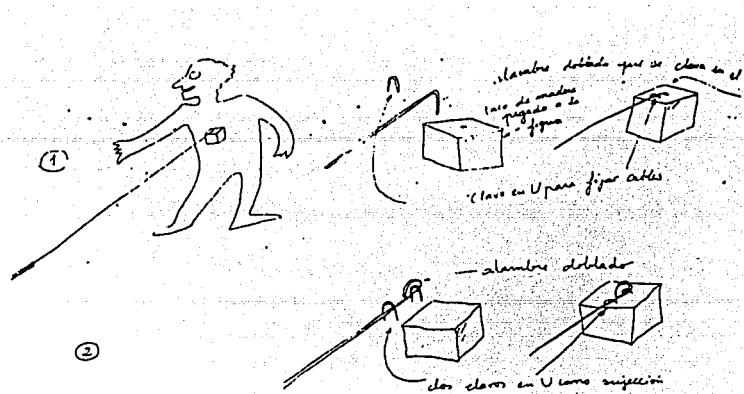 alambre doblado que se clava en el
taco de madera
pegado a la
figura
①
clavo en U para fijar cables
alambre doblado
②
dos clavos en U como sujección